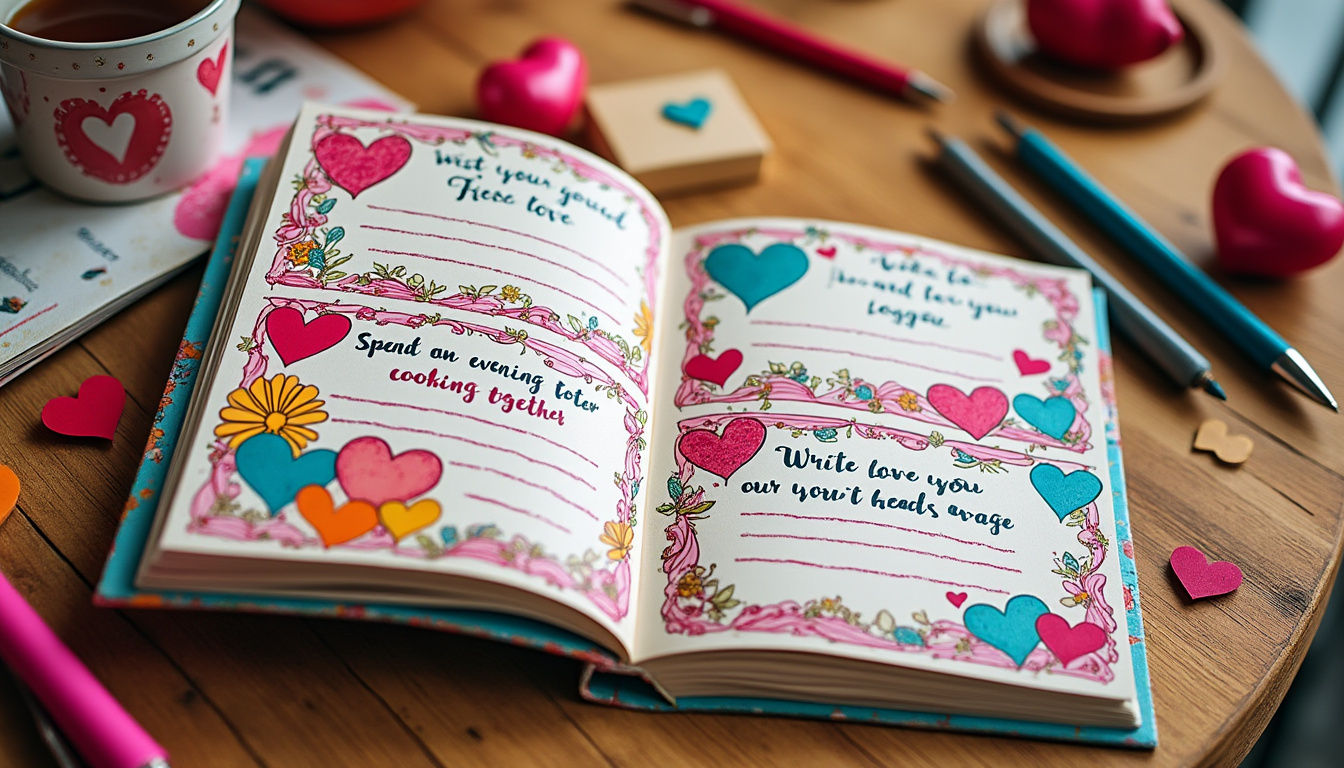 Wist your gourd
Fiese love
Spend an evening toter
cooking tgether
for your
loggou
Write love you
our you't heads avage